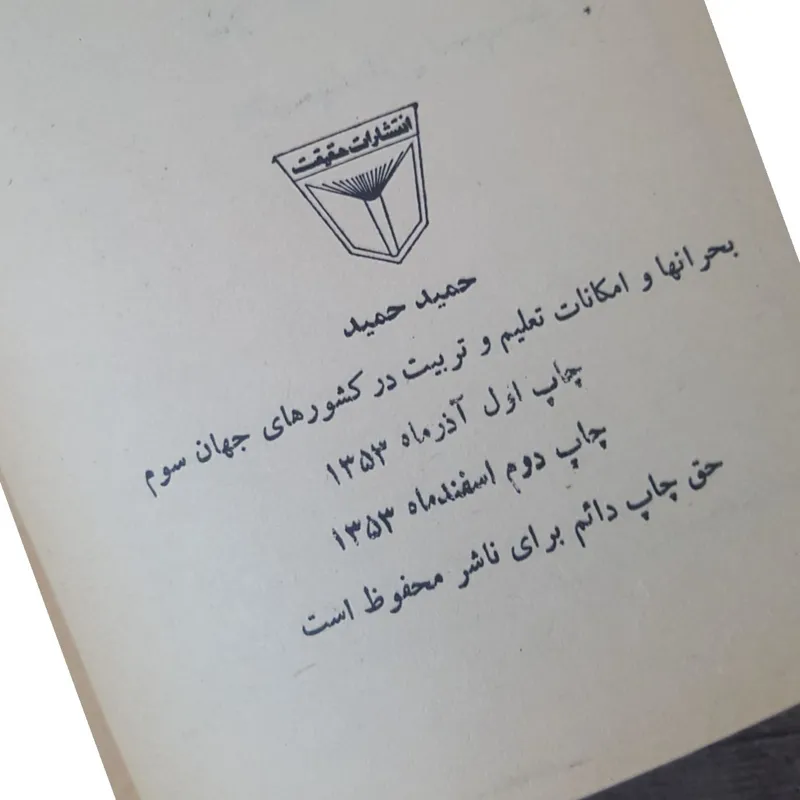 انتشارات حقیقت
حمید حمید
بحرانها و امکانات تعلیم و تربیت در کشورهای جهان سوم
چاپ اول آذرماه ۱۳۵۳
چاپ دوم اسفندماه ۱۳۵۳
حق چاپ دائم برای ناشر محفوظ است